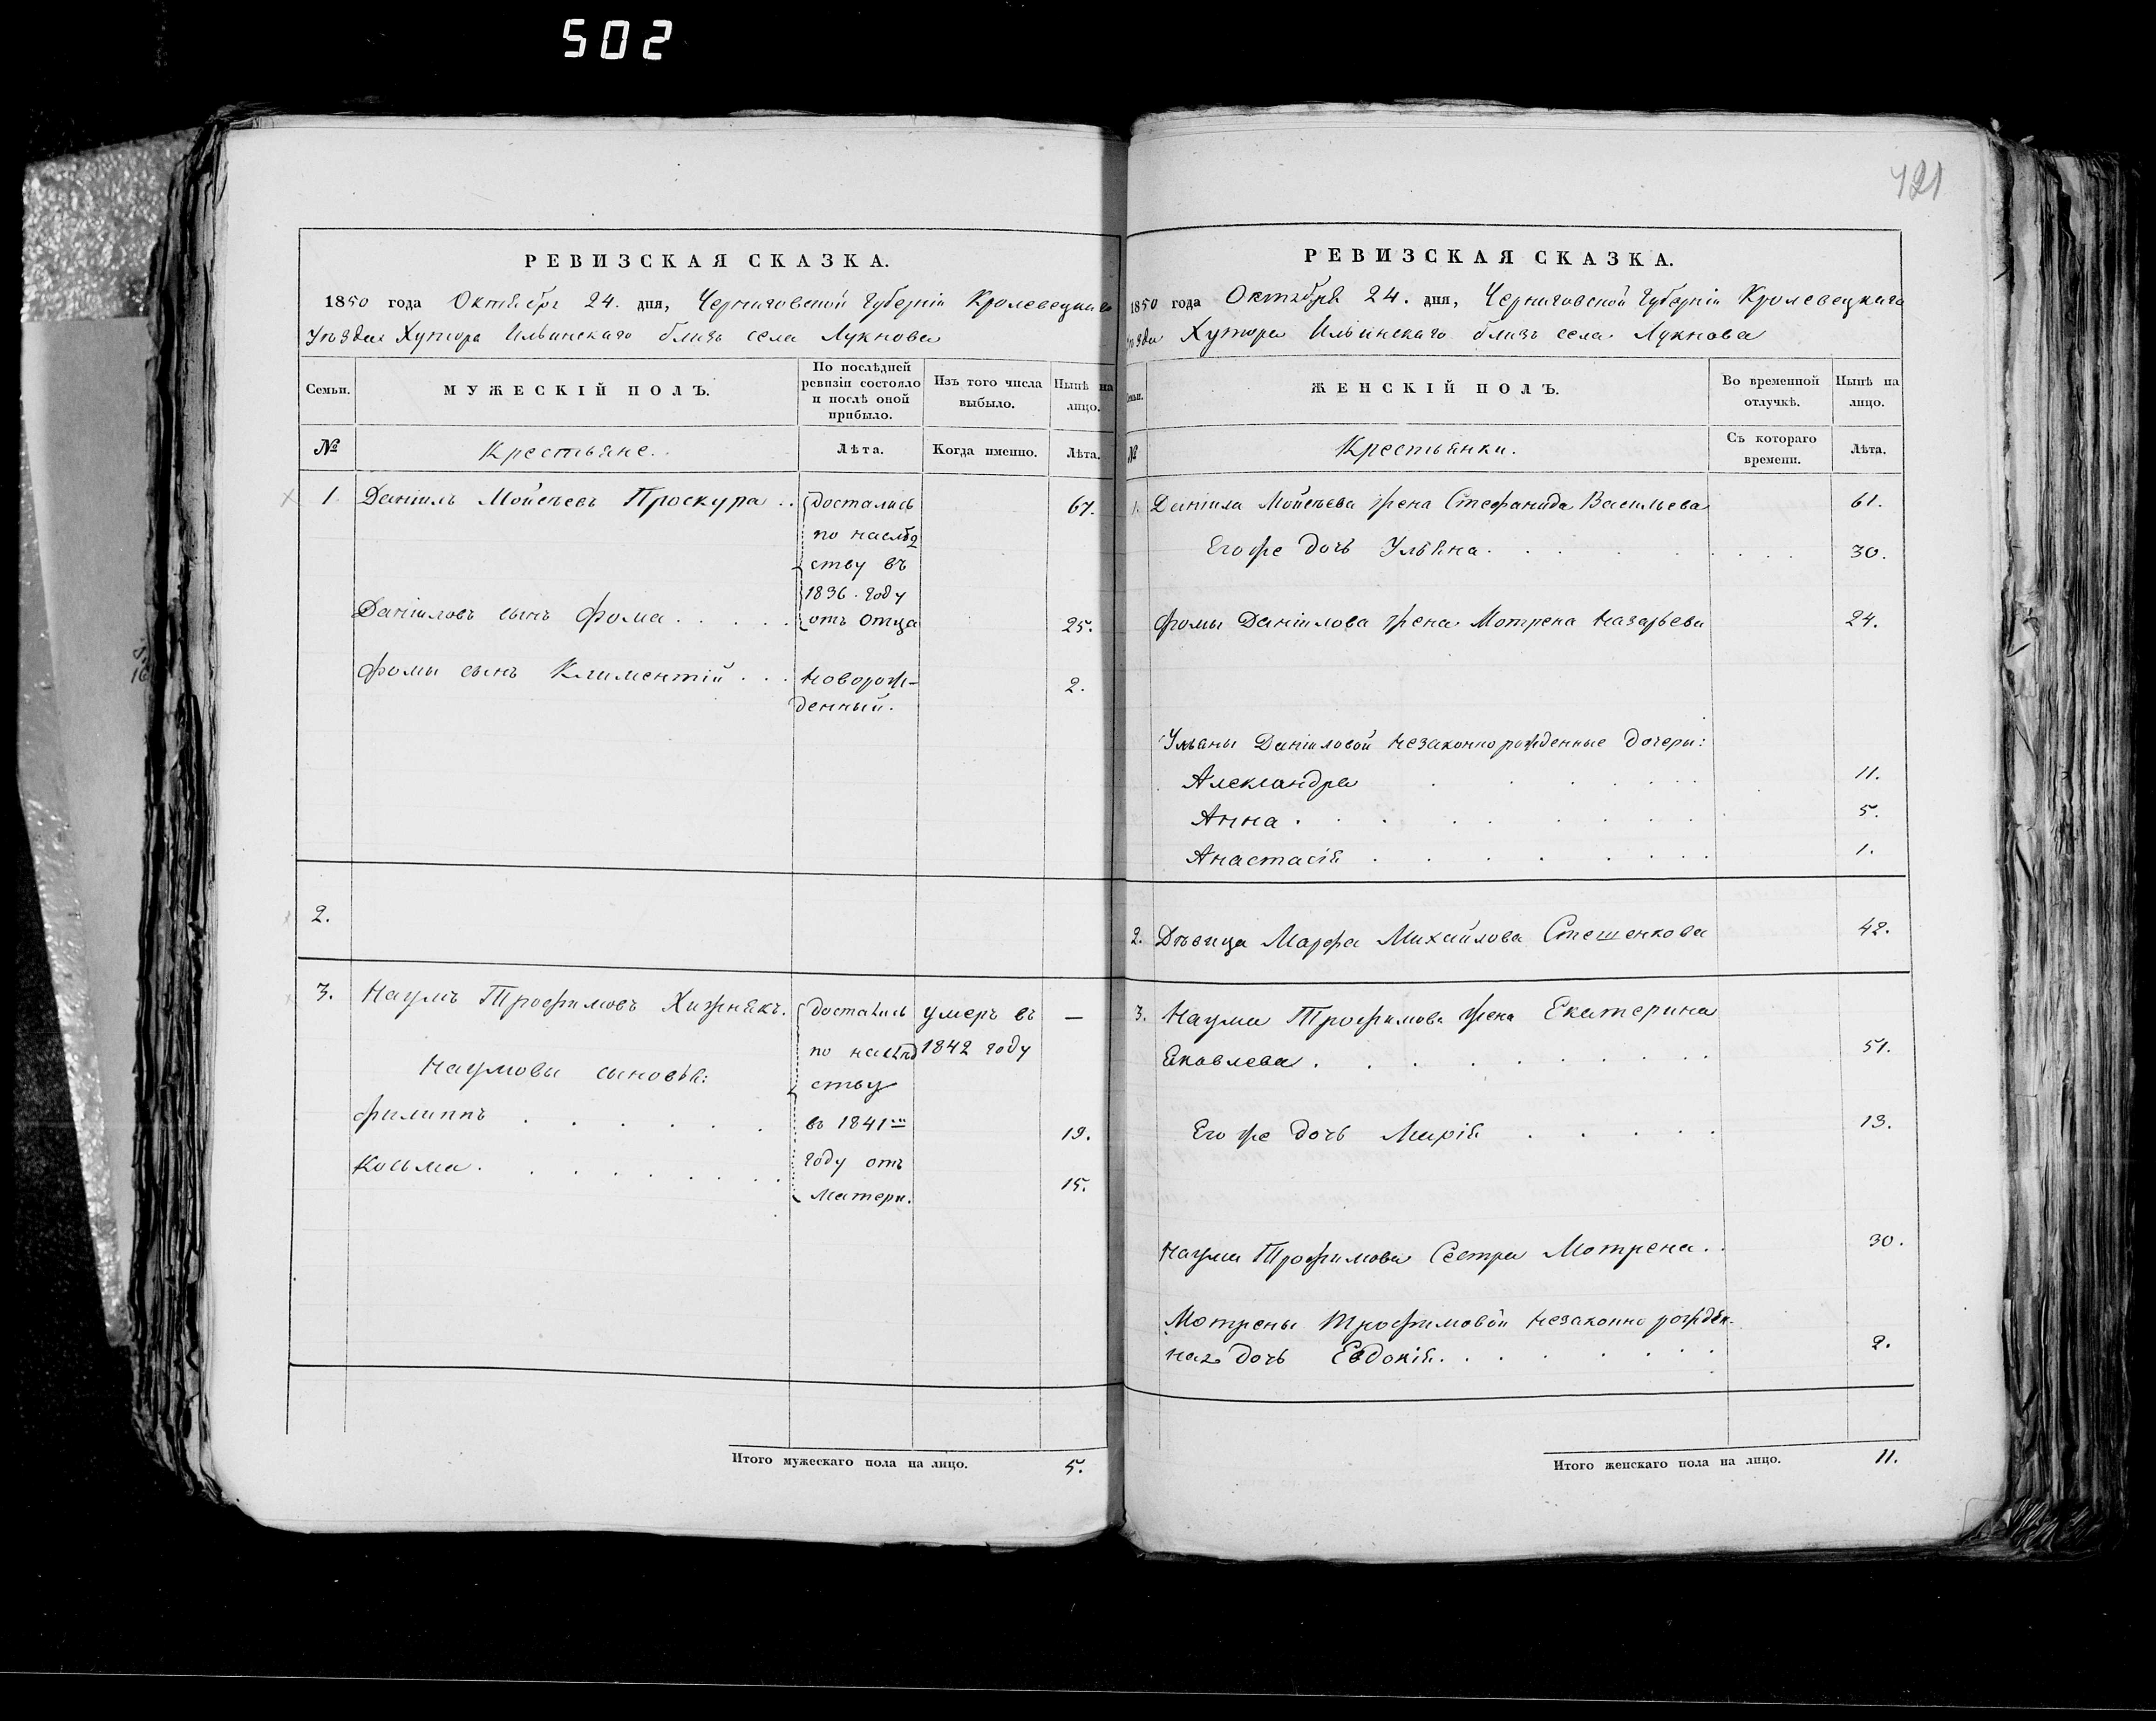 502
421
РЕВИЗСКАЯ СКАЗКА.
1850 года Октября 24. дня, Черниговской Губерніи Кролевецкаго
Уѣзда Хутора Ильинскаго близь села Лукнова
Семьи.
МУЖЕСКІЙ ПОЛЪ.
По послѣдней ревизіи состояло и послѣ оной прибыло.
Изъ того числа выбыло.
Нынѣ на лицо.
№
Крестьяне.
Лѣта.
Когда именно.
Лѣта.
1. Даніилъ Мойсеевъ Проскура . . достались 67.
по наслѣд
ству въ
1836. году
Даніиловъ сынъ Фома . . . . . отъ отца 25.
Фомы сынъ Климентій . . . новорож- 2.
денный.
2.
3. Наумъ Трофимовъ Хижнякъ. достались умеръ въ —
по наслѣд 1842 году
Наумовы сыновья: ству
Филиппъ . . . . . . въ 1841мъ 19.
Козьма . . . . . . . году отъ 15.
матери.
Итого мужескаго пола на лицо. 5.
РЕВИЗСКАЯ СКАЗКА.
1850 года Октября 24. дня, Черниговской Губерніи Кролевецкаго
Уѣзда Хутора Ильинскаго близь села Лукнова
Семьи.
ЖЕНСКІЙ ПОЛЪ.
Во временной отлучкѣ.
Нынѣ на лицо.
№
Крестьянки.
Съ котораго времени.
Лѣта.
1. Даніила Мойсеева жена Стефанида Васильева 61.
Его же дочь Ульяна . . . . . . . 30.
Фомы Даніилова жена Мотрена Назарьева 24.
Ульяны Даніиловой незаконнорожденные дочери:
Александра . . . . . . 11.
Анна . . . . . . . . . 5.
Анастасія . . . . . . . 1.
2. Дѣвица Марфа Михайлова Стешенкова 42.
3. Наума Трофимова жена Екатерина
Яковлева . . . . . . . . 51.
Его же дочь Марія . . . . . 13.
Наума Трофимова Сестра Мотрена . . 30.
Мотрены Трофимовой незаконно рожден-
ная дочь Евдокія . . . . . . . 2.
Итого женскаго пола на лицо. 11.